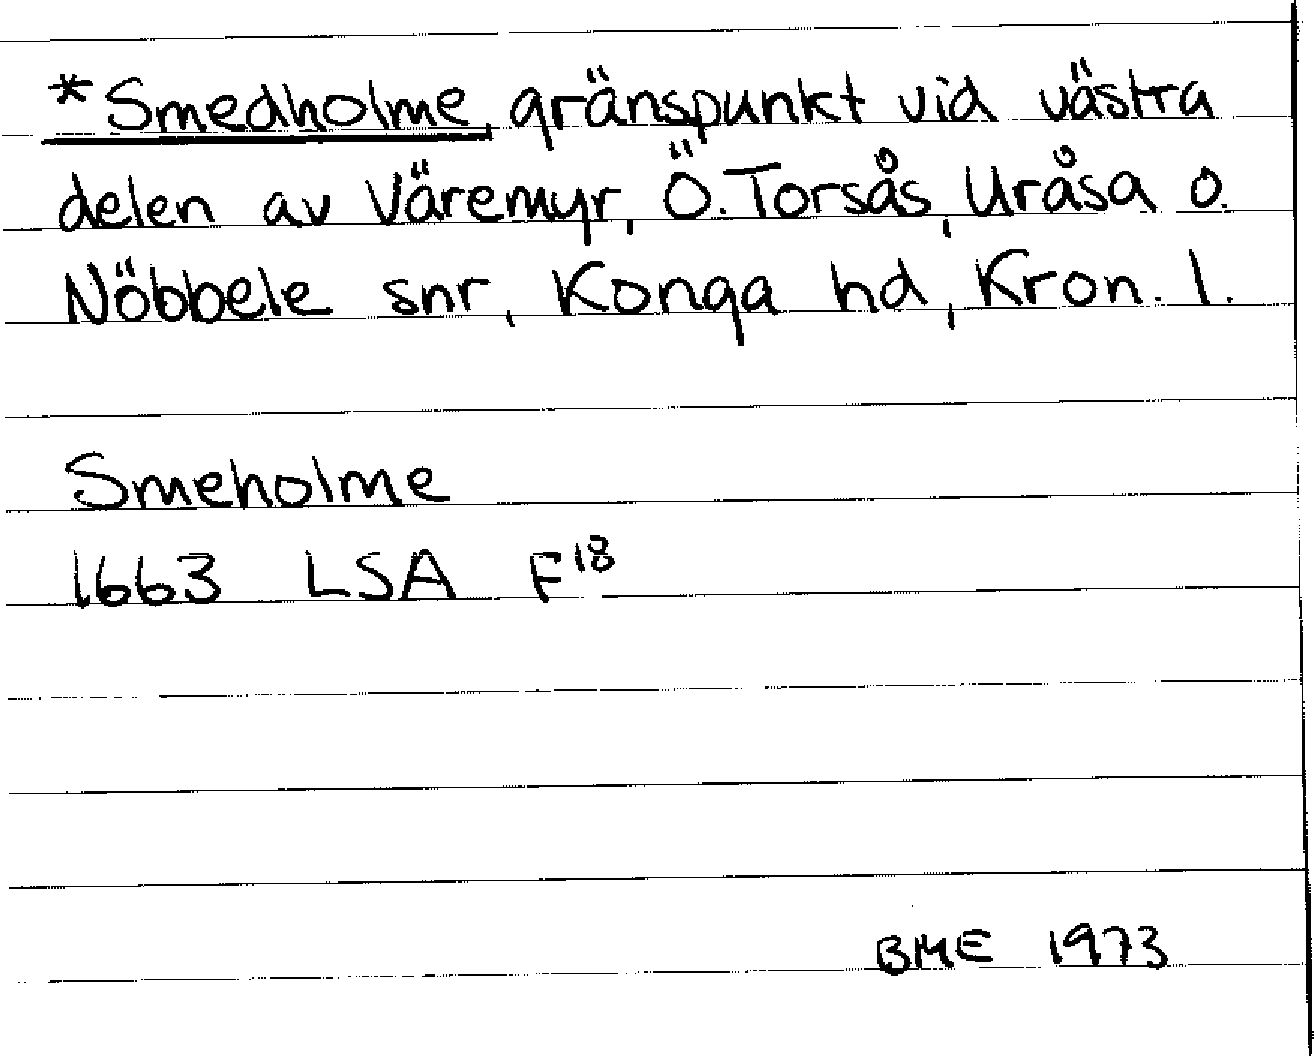 *Smedholme, gränspunkt vid västra
delen av Väremyr, Ö. Torsås, Uråsa o.
Nöbbele snr, Konga hd, Kron. l.
Smeholme
1663 LSA F18
BME 1973